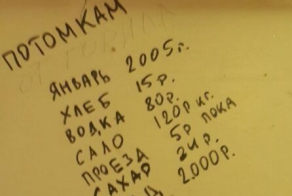 ПОТОМКАМ
ЯНВАРЬ 2005г.
ХЛЕБ 15р.
ВОДКА 80р.
САЛО 120р кг.
ПРОЕЗД 5р ПОКА
САХАР 21р.
2000р.